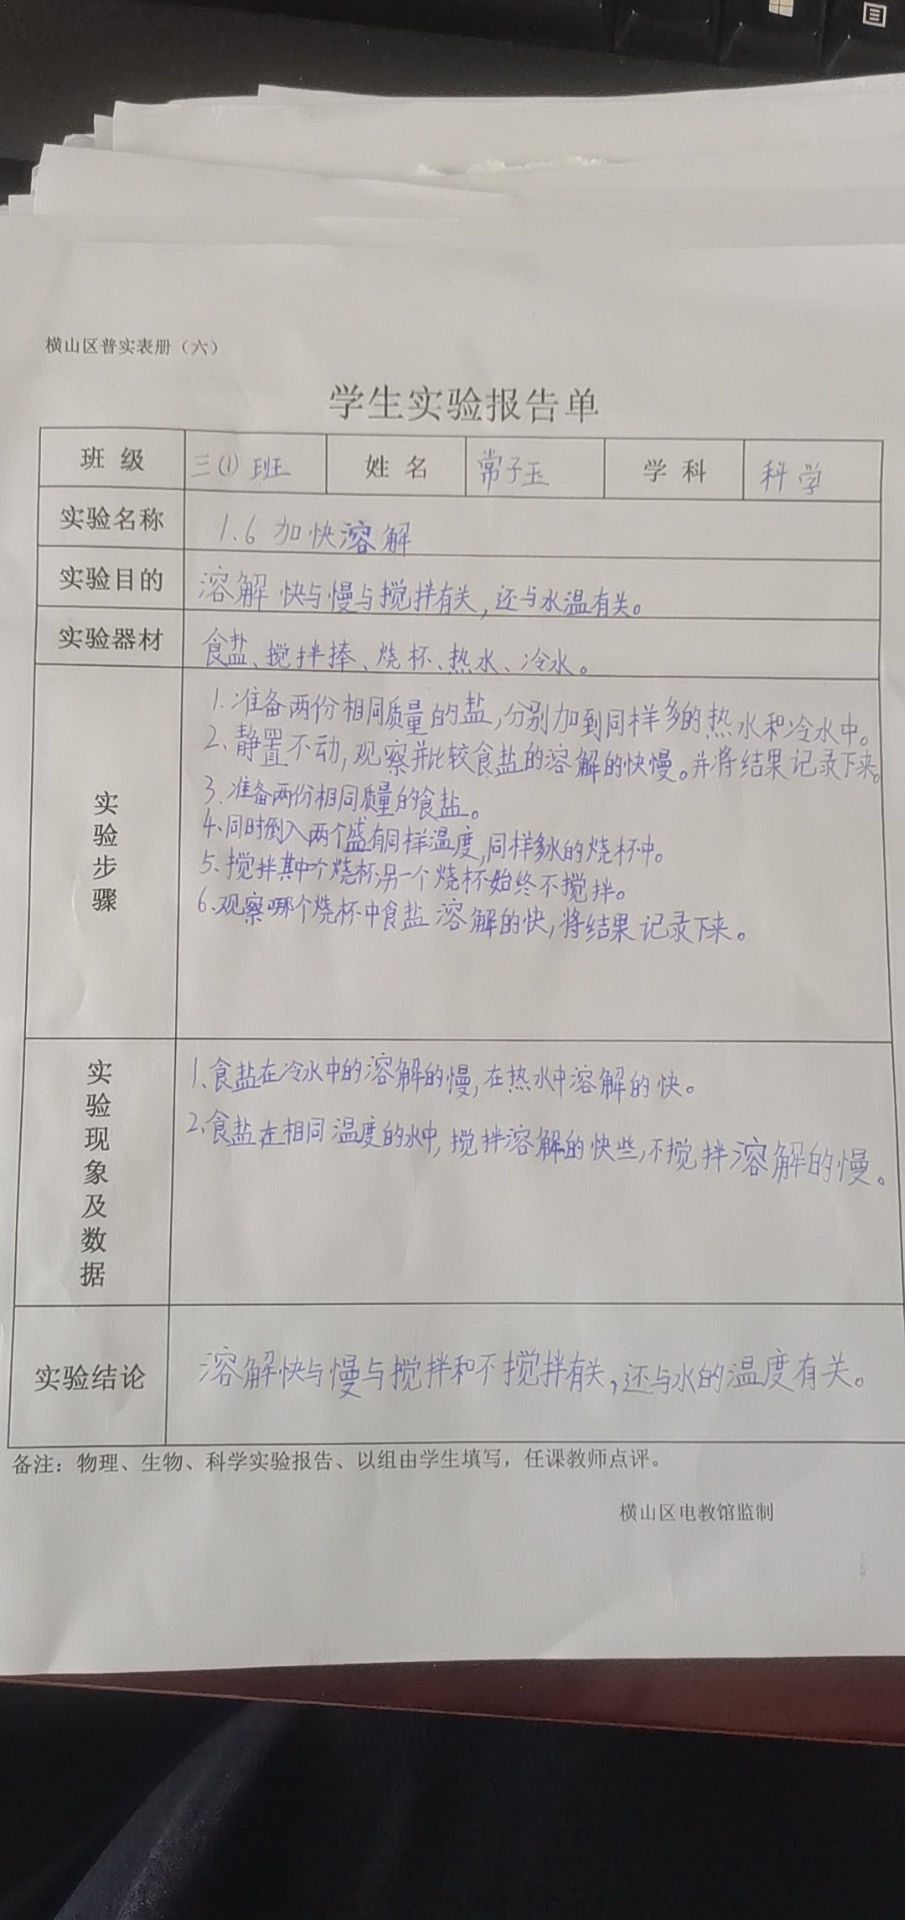 横山区普实表册（六）
学生实验报告单
班级 三(1)班 姓名 常子玉 学科 科学
实验名称 1.6 加快溶解
实验目的 溶解快与慢与搅拌有关，还与水温有关。
实验器材 食盐、搅拌捧、烧杯、热水、冷水。
实验步骤
1.准备两份相同质量的盐，分别加到同样多的热水和冷水中。
2、静置不动，观察并比较食盐的溶解的快慢。并将结果记录下来。
3、准备两份相同质量的食盐。
4、同时倒入两个盛有同样温度，同样多水的烧杯中。
5、搅拌其中个烧杯，另一个烧杯始终不搅拌。
6、观察哪个烧杯中食盐溶解的快，将结果记录下来。
实验现象及数据
1、食盐在冷水中的溶解的慢，在热水中溶解的快。
2、食盐在相同温度的水中，搅拌溶解的快些，不搅拌溶解的慢。
实验结论 溶解快与慢与搅拌和不搅拌有关，还与水的温度有关。
备注：物理、生物、科学实验报告、以组由学生填写，任课教师点评。
横山区电教馆监制